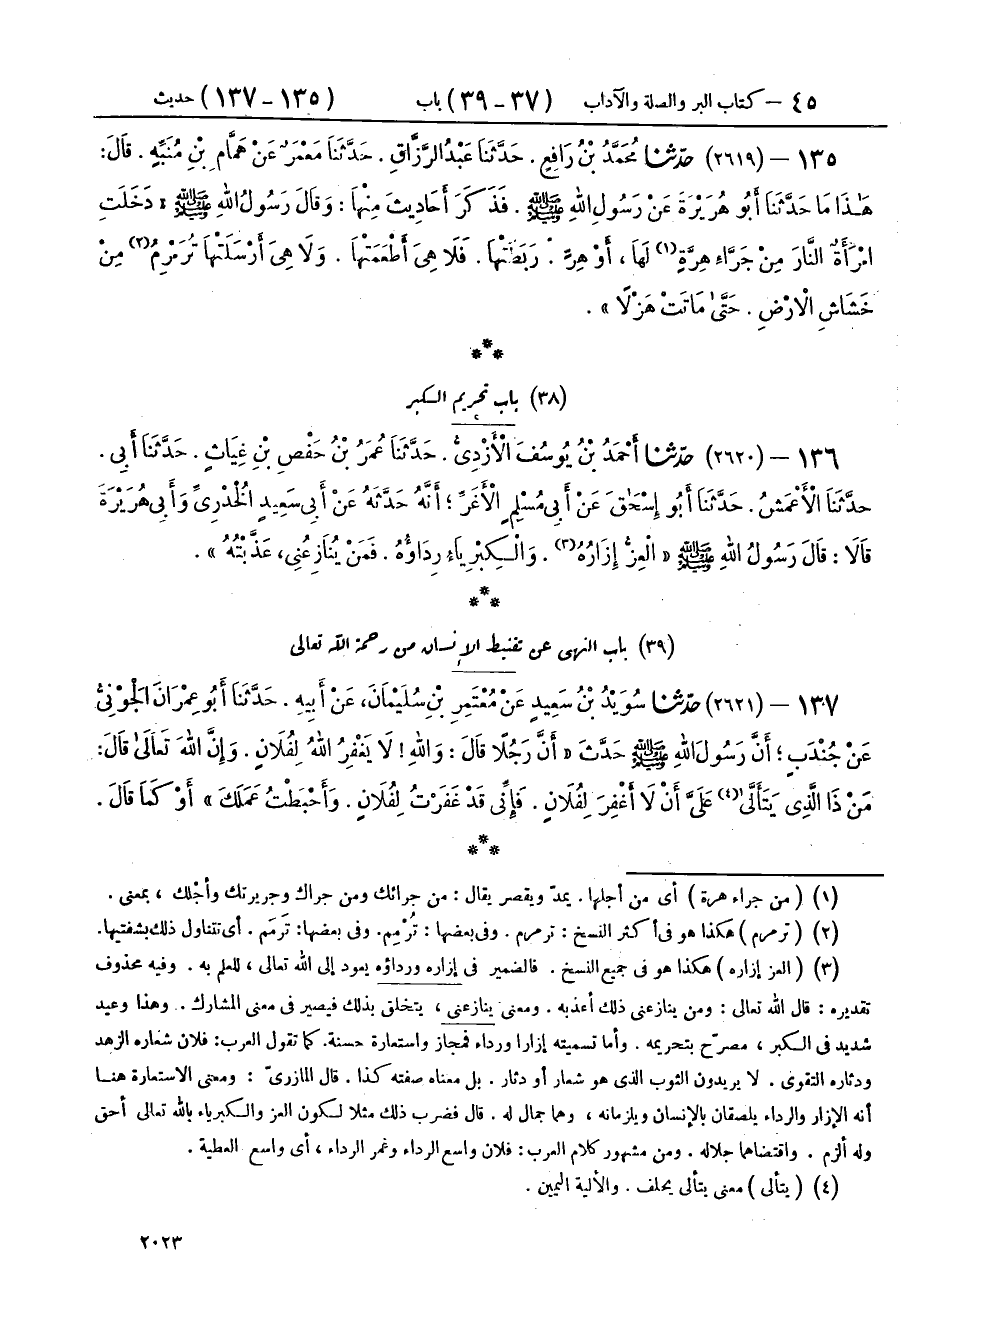 ٤٥ – كتاب البر والصلة والآداب (٣٧ – ٣٩) باب (١٣٥ – ١٣٧) حديث
١٣٥ – (٢٦١٩) حَدَّثَنَا مُحَمَّدُ بْنُ رَافِعٍ . حَدَّثَنَا عَبْدُ الرَّزَّاقِ . حَدَّثَنَا مَعْمَرٌ عَنْ هَمَّامِ بْنِ مُنَبِّهٍ . قَالَ:
هَٰذَا مَا حَدَّثَنَا أَبُو هُرَيْرَةَ عَنْ رَسُولِ اللهِ ﷺ . فَذَكَرَ أَحَادِيثَ مِنْهَا : وَقَالَ رَسُولُ اللهِ ﷺ « دَخَلَتِ
امْرَأَةٌ النَّارَ مِنْ جَرَّاءِ هِرَّةٍ(١) لَهَا ، أَوْ هِرٍّ . رَبَطَتْهَا . فَلَا هِىَ أَطْعَمَتْهَا . وَلَا هِىَ أَرْسَلَتْهَا تُرَمْرِمُ(٢) مِنْ
خَشَاشِ الْأَرْضِ . حَتَّىٰ مَاتَتْ هَزْلًا » .
***
(٣٨) باب تحريم الكبر
١٣٦ – (٢٦٢٠) حَدَّثَنَا أَحْمَدُ بْنُ يُوسُفَ الْأَزْدِىُّ . حَدَّثَنَا عُمَرُ بْنُ حَفْصِ بْنِ غِيَاثٍ . حَدَّثَنَا أَبِى .
حَدَّثَنَا الْأَعْمَشُ . حَدَّثَنَا أَبُو إِسْحَٰقَ عَنْ أَبِى مُسْلِمٍ الْأَغَرِّ ؛ أَنَّهُ حَدَّثَهُ عَنْ أَبِى سَعِيدٍ الْخُدْرِىِّ وَأَبِى هُرَيْرَةَ
قَالَا : قَالَ رَسُولُ اللهِ ﷺ « الْعِزُّ إِزَارُهُ(٣) . وَالْكِبْرِيَاءُ رِدَاؤُهُ . فَمَنْ يُنَازِعُنِى، عَذَّبْتُهُ » .
***
(٣٩) باب النهى عن تقنيط الإنسان من رحمة الله تعالى
١٣٧ – (٢٦٢١) حَدَّثَنَا سُوَيْدُ بْنُ سَعِيدٍ عَنْ مُعْتَمِرِ بْنِ سُلَيْمَانَ، عَنْ أَبِيهِ . حَدَّثَنَا أَبُو عِمْرَانَ الْجَوْنِىُّ
عَنْ جُنْدَبٍ ؛ أَنَّ رَسُولَ اللهِ ﷺ حَدَّثَ « أَنَّ رَجُلًا قَالَ : وَاللهِ! لَا يَغْفِرُ اللهُ لِفُلَانٍ . وَإِنَّ اللهَ تَعَالَىٰ قَالَ:
مَنْ ذَا الَّذِى يَتَأَلَّىٰ(٤) عَلَىَّ أَنْ لَا أَغْفِرَ لِفُلَانٍ . فَإِنِّى قَدْ غَفَرْتُ لِفُلَانٍ . وَأَحْبَطْتُ عَمَلَكَ » أَوْ كَمَا قَالَ .
***
(١) ( من جراء هرة ) أى من أجلها . يمدّ ويقصر يقال : من جرائك ومن جراك وجريرتك وأجْلك ، بمعنى .
(٢) ( ترمرم ) هكذا هو فى أكثر النسخ : ترمرم . وفى بعضها : تُرْمِم. وفى بعضها: تَرَمَم . أى تتناول ذلك بشفتيها.
(٣) ( العز إزاره ) هكذا هو فى جميع النسخ . فالضمير فى إزاره ورداؤه يعود إلى الله تعالى ، للعلم به . وفيه محذوف
تقديره : قال الله تعالى : ومن ينازعنى ذلك أعذبه . ومعنى ينازعنى ، يتخلق بذلك فيصير فى معنى المشارك . وهذا وعيد
شديد فى الكبر ، مصرّح بتحريمه . وأما تسميته إزارا ورداء فمجاز واستعارة حسنة. كما تقول العرب: فلان شعاره الزهد
ودثاره التقوى . لا يريدون الثوب الذى هو شعار أو دثار . بل معناه صفته كذا . قال المازرىّ : ومعنى الاستعارة هنا
أنه الإزار والرداء يلصقان بالإنسان ويلزمانه ، وهما جمال له . قال فضرب ذلك مثلا لكون العز والكبرياء بالله تعالى أحق
وله ألزم . واقتضاهما جلاله . ومن مشهور كلام العرب: فلان واسع الرداء وغمر الرداء ، أى واسع العطية .
(٤) ( يتألى ) معنى يتألى يحلف . والألية اليمين .
٢٠٢٣